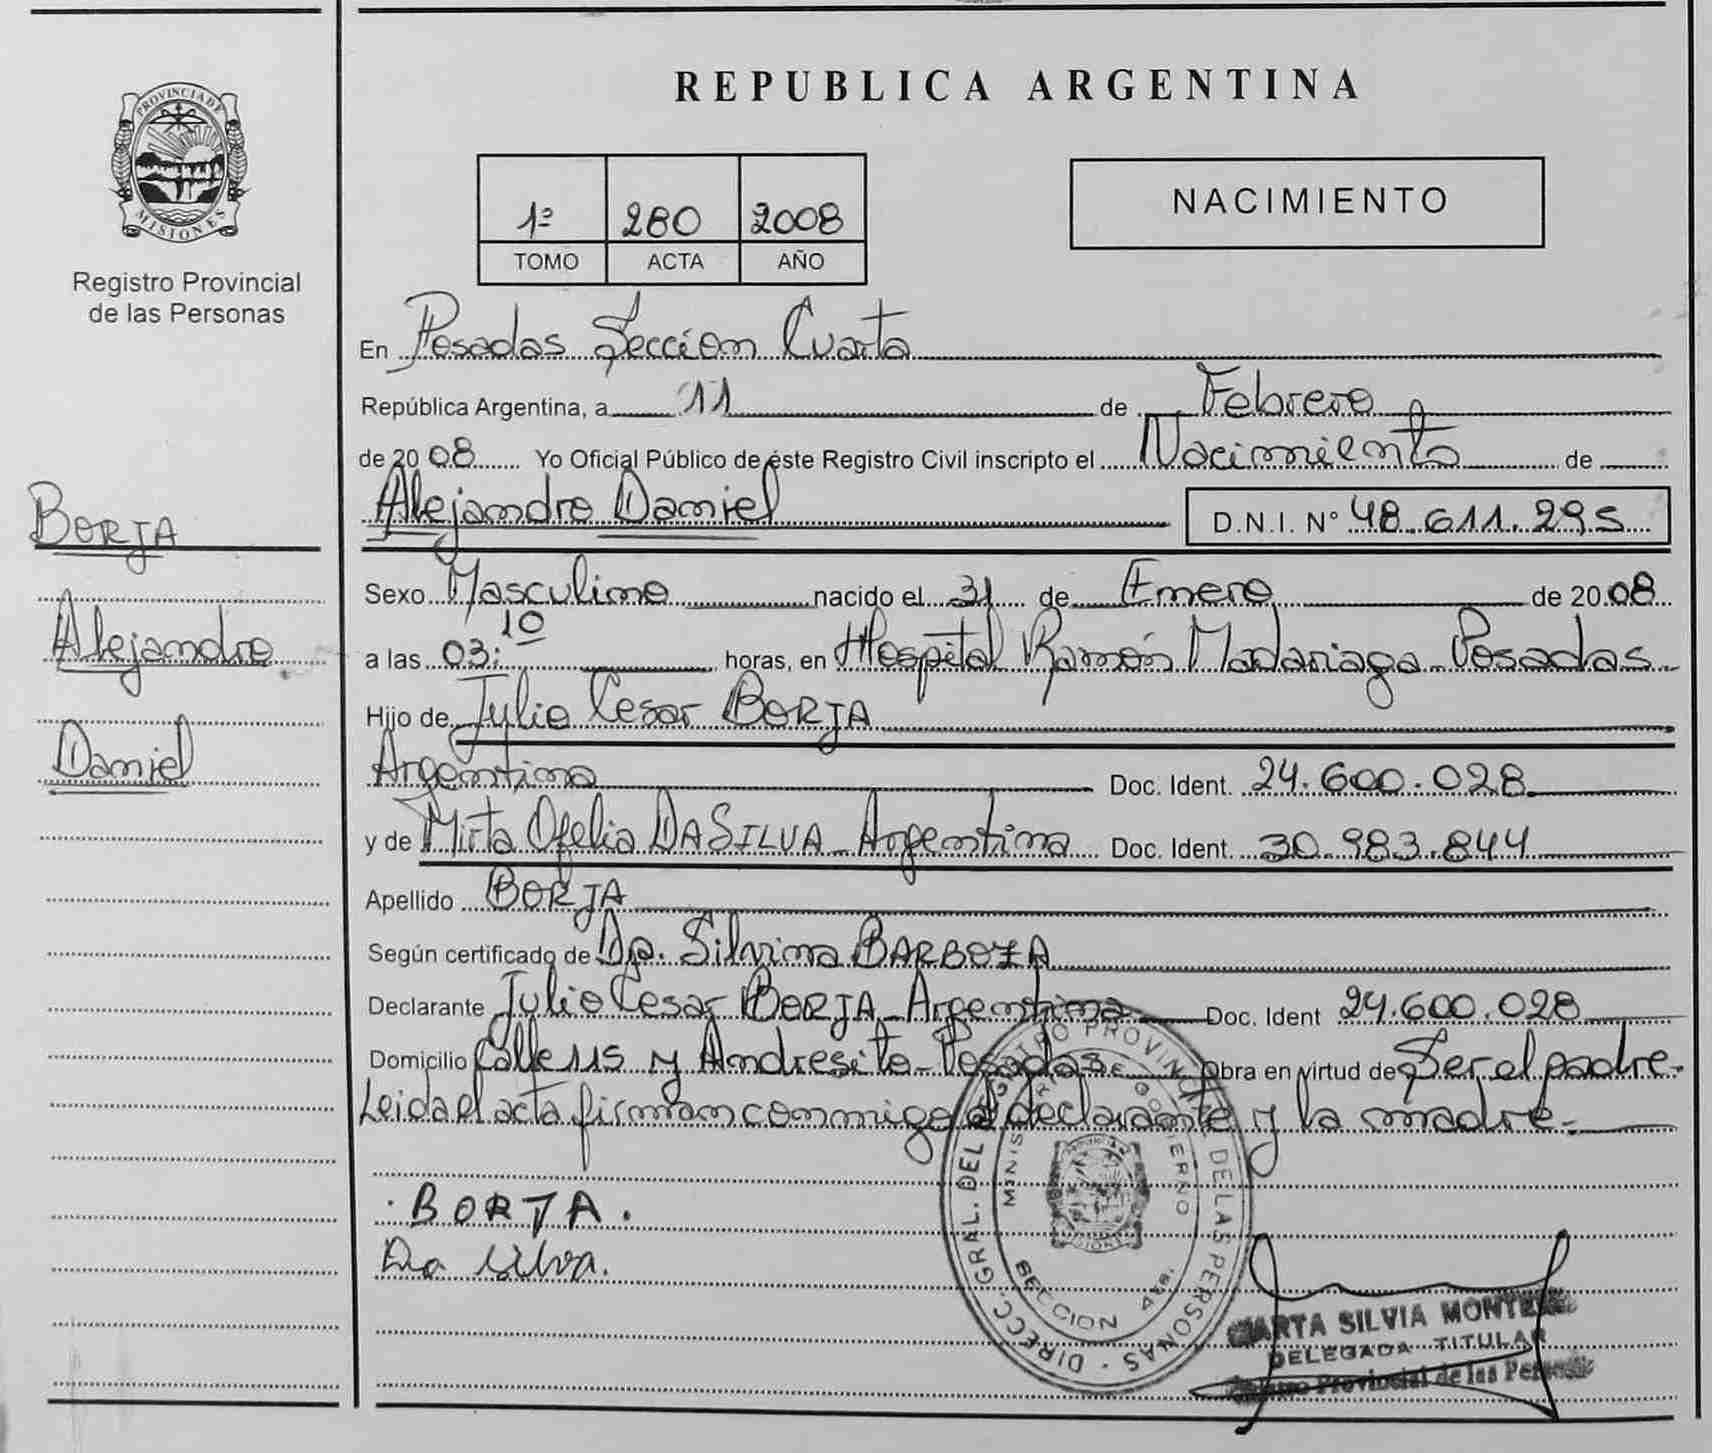 PROVINCIA DE
MISIONES
Registro Provincial
de las Personas
BORJA
Alejandro
Daniel
REPUBLICA ARGENTINA
1º 280 2008
TOMO ACTA AÑO
NACIMIENTO
En Posadas Sección Cuarta
República Argentina, a 11 de Febrero
de 2008 Yo Oficial Público de éste Registro Civil inscripto el Nacimiento de
Alejandro Daniel D.N.I. Nº 48.611.295
Sexo Masculino nacido el 31 de Enero de 2008
a las 03:10 horas, en Hospital Ramón Madariaga Posadas
Hijo de Julio Cesar BORJA
Argentina Doc. Ident. 24.600.028
y de Mirta Ofelia DA SILVA - Argentina Doc. Ident. 30.983.844
Apellido BORJA
Según certificado de Dra. Silvina BARBOZA
Declarante Julio Cesar BORJA - Argentina Doc. Ident 24.600.028
Domicilio Calle 115 y Andresito - Posadas Obra en virtud de Ser el padre.-
Leida el acta firman conmigo el declarante y la madre.-
BORJA.
Da Silva.
DIRECC. GRAL. DEL REGISTRO PROVINCIAL DE LAS PERSONAS
GOBIERNO
SECCION 4ta.
MARTA SILVIA
DELEGADA TITULAR
Provincial de las